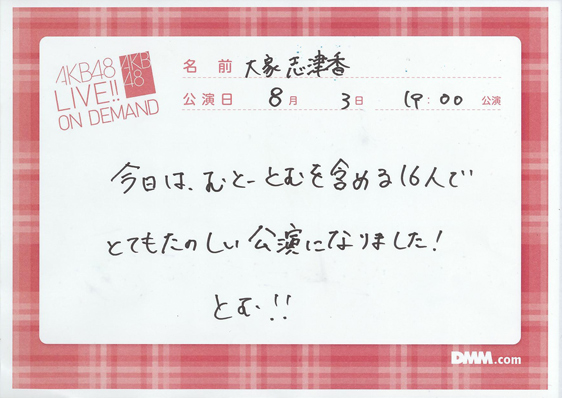 AKB48
LIVE!!
ON DEMAND
AKB
48
名前 大家志津香
公演日 8月 3日 19:00 公演
今日は、むとーとむを含める16人で
とてもたのしい公演になりました!
とむ!!
DMM.com